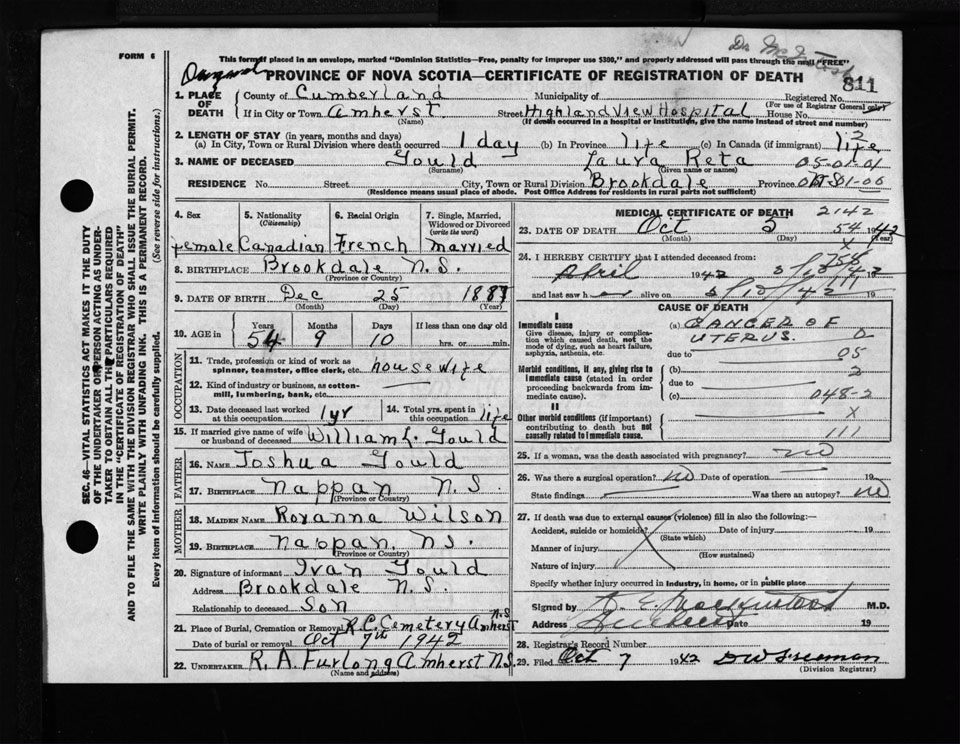 FORM 6
This form if placed in an envelope, marked "Dominion Statistics—Free, penalty for improper use $300," and properly addressed will pass through the mail "FREE"
Dr
PROVINCE OF NOVA SCOTIA—CERTIFICATE OF REGISTRATION OF DEATH
811
1. PLACE OF DEATH
County of Cumberland Municipality of Registered No.
(For use of Registrar General only)
If in City or Town Amherst Street Highland View Hospital House No.
(Name) (If death occurred in a hospital or institution, give the name instead of street and number)
2. LENGTH OF STAY (in years, months and days)
(a) In City, Town or Rural Division where death occurred 1 day (b) In Province life (c) In Canada (if immigrant) life
3. NAME OF DECEASED Gould Laura Reta 05-01-01
(Surname) (Given name or names)
RESIDENCE No. Street City, Town or Rural Division Brookdale Province
(Residence means usual place of abode. Post Office Address for residents in rural parts not sufficient)
4. Sex
female
5. Nationality (Citizenship)
Canadian
6. Racial Origin
French
7. Single, Married, Widowed or Divorced (write the word)
married
8. BIRTHPLACE Brookdale N.S.
(Province or Country)
9. DATE OF BIRTH Dec 25 1887
(Month) (Day) (Year)
10. AGE in Years Months Days If less than one day old
54 9 10 hrs. or min.
OCCUPATION
11. Trade, profession or kind of work as spinner, teamster, office clerk, etc. housewife
12. Kind of industry or business, as cotton-mill, lumbering, bank, etc.
13. Date deceased last worked at this occupation 1 yr
14. Total yrs. spent in this occupation life
15. If married give name of wife or husband of deceased William L. Gould
FATHER
16. Name Joshua Gould
17. Birthplace Nappan N.S.
(Province or Country)
MOTHER
18. Maiden Name Roxanna Wilson
19. Birthplace Nappan, N.S.
(Province or Country)
20. Signature of informant Ivan Gould
Address Brookdale N.S.
Relationship to deceased Son
21. Place of Burial, Cremation or Removal R.C. Cemetery Amherst N.S
Date of burial or removal Oct 7th 1942
22. UNDERTAKER R. A. Furlong Amherst N.S.
(Name and address)
MEDICAL CERTIFICATE OF DEATH 2142
23. DATE OF DEATH Oct 5 54 1942
(Month) (Day) (Year)
X
24. I HEREBY CERTIFY that I attended deceased from:
April 1942
and last saw h alive on 19
CAUSE OF DEATH
I
Immediate cause
Give disease, injury or complication which caused death, not the mode of dying, such as heart failure, asphyxia, asthenia, etc.
(a) CANCER OF UTERUS.
due to 05
Morbid conditions, if any, giving rise to immediate cause (stated in order proceeding backwards from immediate cause).
(b) 2
due to
(c) 048-2
II
Other morbid conditions (if important) contributing to death but not causally related to immediate cause.
X
111
25. If a woman, was the death associated with pregnancy? no
26. Was there a surgical operation? no Date of operation 19
State findings Was there an autopsy? no
27. If death was due to external causes (violence) fill in also the following:—
Accident, suicide or homicide? Date of injury 19
(State which)
Manner of injury
(How sustained)
Nature of injury
Specify whether injury occurred in industry, in home, or in public place
Signed by M.D.
Address Date 19
28. Registrar's Record Number
29. Filed Oct 7 1942 D W Freeman
(Division Registrar)
SEC. 46—VITAL STATISTICS ACT MAKES IT THE DUTY
OF THE UNDERTAKER OR PERSON ACTING AS UNDER-
TAKER TO OBTAIN ALL THE PARTICULARS REQUIRED
IN THE "CERTIFICATE OF REGISTRATION OF DEATH"
AND TO FILE THE SAME WITH THE DIVISION REGISTRAR WHO SHALL ISSUE THE BURIAL PERMIT.
WRITE PLAINLY WITH UNFADING INK. THIS IS A PERMANENT RECORD.
Every item of information should be carefully supplied. (See reverse side for instructions.)